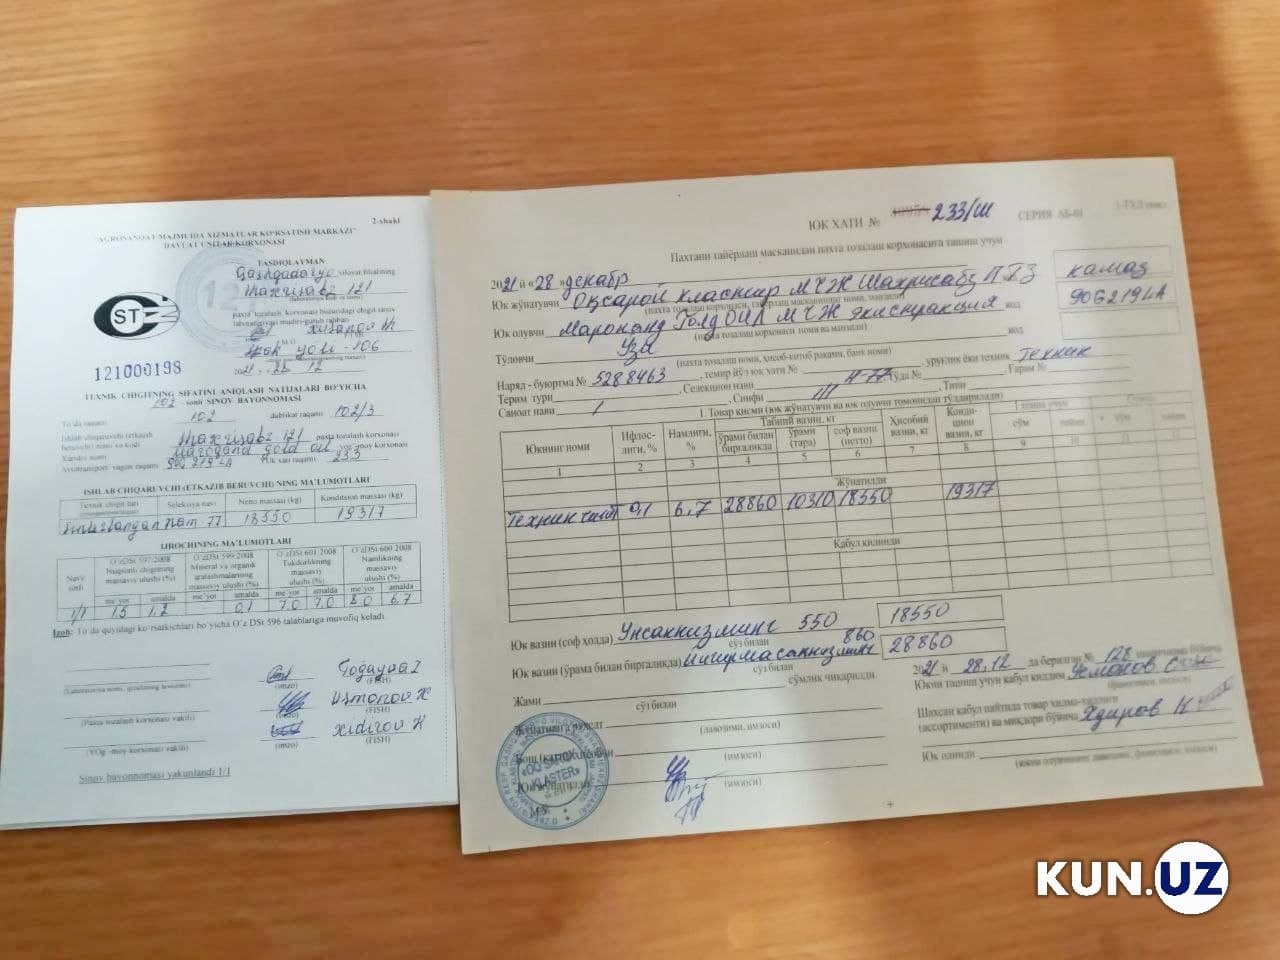 2-shakl
"AGROSANOAT MAJMUIDA XIZMATLAR KO'RSATISH MARKAZI"
DAVLAT UNITAR KORXONASI
TASDIQLAYMAN
Qashqadaryo viloyat filialining
Shaxrisabz 121
ST
121000198
2021 28 12
TEXNIK CHIGITNING SIFATINI ANIQLASH NATIJALARI BO'YICHA
102 sonli SINOV BAYONNOMASI
To'da raqami 102 dublikat raqami 102/3
Ishlab chiqaruvchi (etkazib Shaxrisabz 121 paxta tozalash korxonasi
beruvchi) nomi va kodi
Xaridor nomi Maroqand gold oil yog'-moy korxonasi
Avtotransport vagon raqami 90G 219 LA Yuk xati raqami 233
ISHLAB CHIQARUVCHI (ETKAZIB BERUVCHI) NING MA'LUMOTLARI
Texnik chigit turi Seleksiya navi Netto massasi (kg) Konditsion massasi (kg)
Nam 77 18550 19317
IJROCHINING MA'LUMOTLARI
Navi, sinfi
O'zDSt 597:2008 Nuqsonli chigitning massaviy ulushi (%)
O'zDSt 599:2008 Mineral va organik aralashmalarning massaviy ulushi (%)
O'zDSt 601:2008 Tukdorlikning massaviy ulushi (%)
O'zDSt 600:2008 Namlikning massaviy ulushi (%)
me'yor amalda me'yor amalda me'yor amalda me'yor amalda
1/1 1,5 1,2 0,1 7,0 7,0 8,0 6,7
Izoh: To'da quyidagi ko'rsatkichlari bo'yicha O'z DSt 596 talablariga muvofiq keladi.
(imzo) (FISH)
(Paxta tozalash korxonasi vakili) (imzo) Usmonov X (FISH)
(YOg'-moy korxonasi vakili) (imzo) Xidirov K (FISH)
Sinov bayonnomasi yakunlandi 1/1
ЮК ХАТИ № 233/Ш СЕРИЯ АБ-01
Пахтани тайёрлаш масканидан пахта тозалаш корхонасига ташиш учун
2021 й «28» декабр
Юк жўнатувчи Оқсарой кластир МЧЖ Шахрисабз ПТЗ камаз
(пахта тозалаш корхонаси, тайёрлаш масканининг номи, манзили)
Юк олувчи Мароканд Голд ОИЛ МЧЖ экистракция код 90G219LA
(пахта тозалаш корхонаси номи ва манзили)
Тўловчи Узи код
(пахта тозалаш номи, ҳисоб-китоб рақами, банк номи)
Наряд - буюртма № 5288463, темир йўл юк хати № уруғлик ёки техник Техник
Терим тури , Селекцион нави Н-77 Тўда № Гарам №
Саноат нави 1 , Синфи Типи
1. Товар қисми (юк жўнатувчи ва юк олувчи томонидан тўлдирилади)
Юкнинг номи Ифлослиги, % Намлиги, % Табиий вазни, кг Ҳисобий вазни, кг Кондицион вазни, кг
ўрами билан биргаликда ўрами (тара) соф вазни (нетто)
1 2 3 4 5 6 7 8 9
Жўнатилди
Техник чигит 0,1 6,7 28860 10310 18550 19317
Қабул қилинди
Юк вазни (соф ҳолда) Унсаккизминг 550 18550
сўз билан
Юк вазни (ўрама билан биргаликда) Йигирмасаккизминг 860 28860
сўз билан
Жами сўмлик чиқарилди.
сўз билан
Жўнатишга рухсат
(лавозими, имзоси)
Бош (катта) ҳисобчи
(имзоси)
Юк жўнатилди
(имзоси)
М.Ў.
«OQ SAROY KLASTER»
2021 й 28.12 да берилган № 128
Юкни ташиш учун қабул қилдим
Шахсан қабул пайтида товар хилма-хиллиги
(ассортименти) ва миқдори бўйича Хдиров К
Юк олинди
KUN.UZ